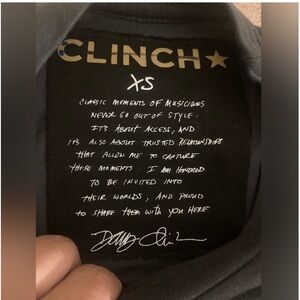 CLINCH★
XS
CLASSIC MOMENTS OF MUSICIANS
NEVER GO OUT OF STYLE.
IT'S ABOUT ACCESS, AND
IT'S ALSO ABOUT TRUSTED RELATIONSHIPS
THAT ALLOW ME TO CAPTURE
THESE MOMENTS. I AM HONORED
TO BE INVITED INTO
THEIR WORLDS, AND PROUD
TO SHARE THEM WITH YOU HERE